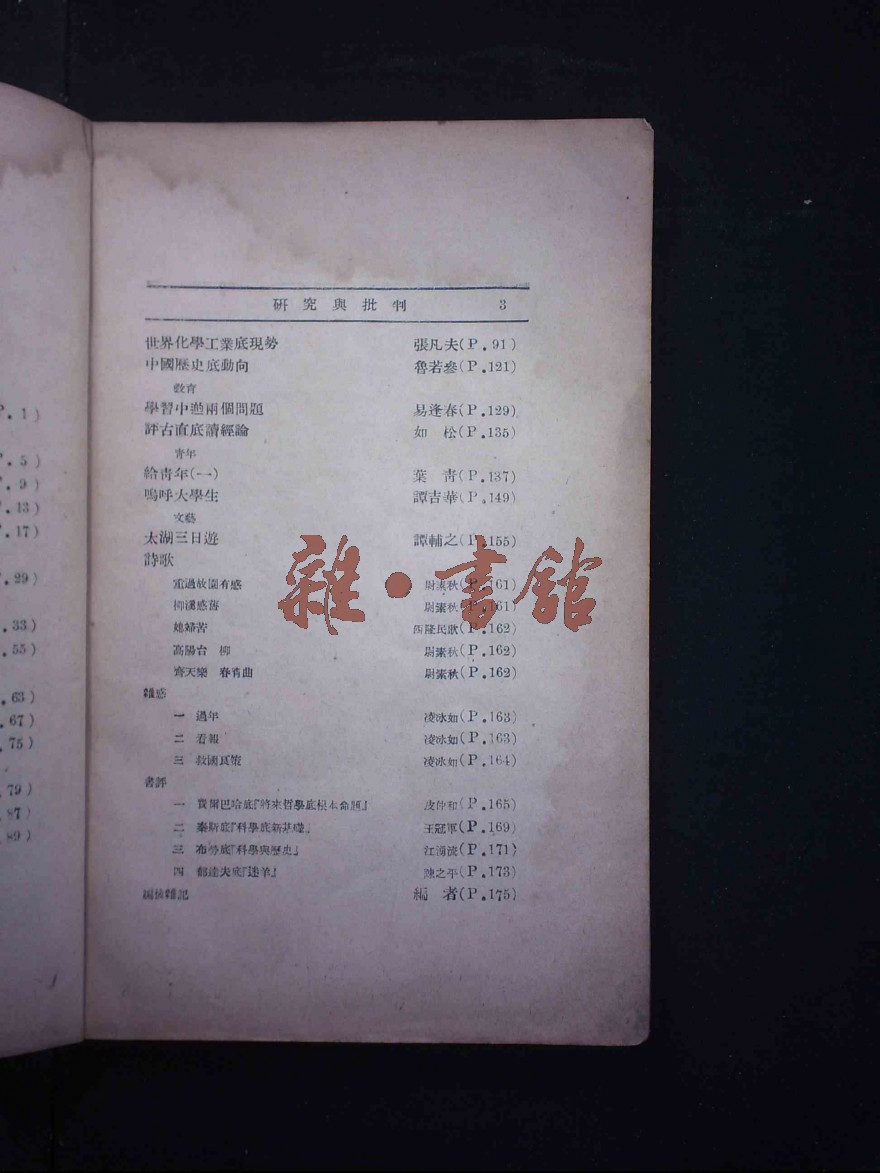 研究與批判 3
世界化學工業底現勢 張凡夫(P.91)
中國歷史底動向 魯若參(P.121)
教育
學習中遇兩個問題 易逢春(P.129)
評古直底讀經論 如松(P.135)
青年
給青年(一) 葉青(P.137)
嗚呼大學生 譚吉華(P.149)
文藝
太湖三日遊 譚輔之(P.155)
詩歌
重過故園有感 尉素秋(P.161)
柳溪感舊 尉素秋(P.161)
媳婦苦 民歌(P.162)
高陽台 柳 尉素秋(P.162)
齊天樂 春宵曲 尉素秋(P.162)
雜感
一 過年 凌冰如(P.163)
二 看報 凌冰如(P.163)
三 救國良策 凌冰如(P.164)
書評
一 費爾巴哈底『將來哲學底根本命題』 皮仲和(P.165)
二 秦斯底『科學底新基礎』 王冠軍(P.169)
三 布勞底『科學與歷史』 江湧流(P.171)
四 郁達夫底『迷羊』 陳之平(P.173)
編後雜記 編者(P.175)
P.1)
P.5)
P.9)
P.13)
P.17)
P.29)
.33)
.55)
.63)
.67)
.75)
.79)
.87)
.89)
雜·書館